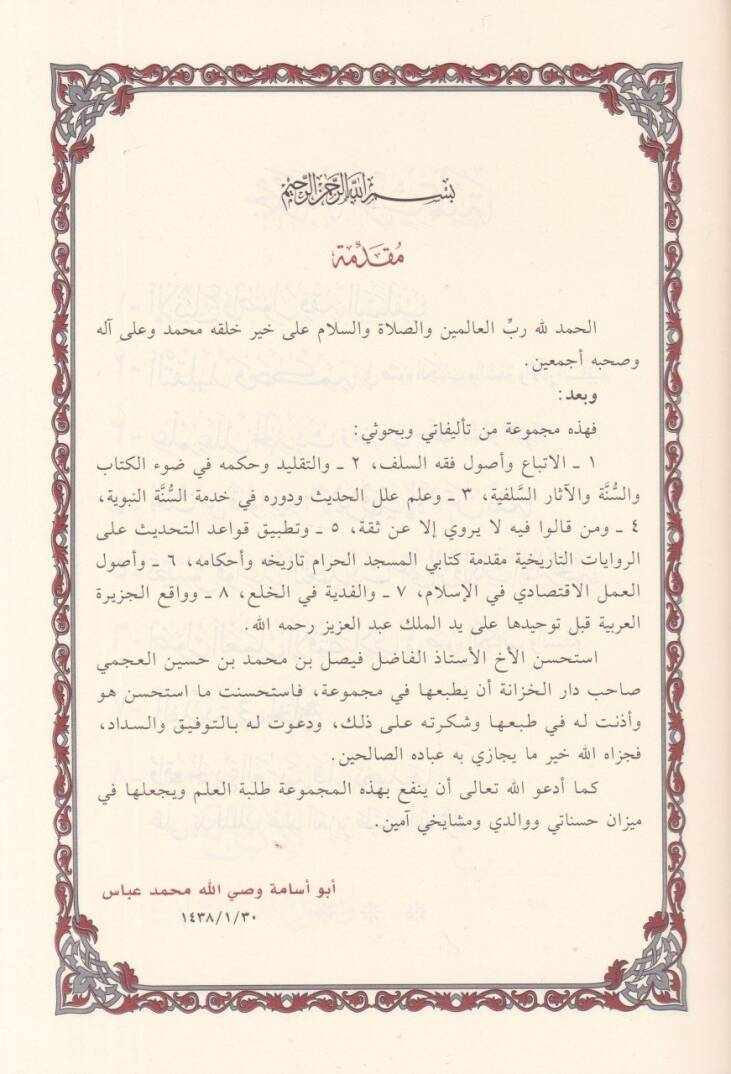 بسم الله الرحمن الرحيم
مُقَدِّمة
الحمد لله ربِّ العالمين والصلاة والسلام على خير خلقه محمد وعلى آله
وصحبه أجمعين.
وبعد:
فهذه مجموعة من تأليفاتي وبحوثي:
١ ـ الاتباع وأصول فقه السلف، ٢ ـ والتقليد وحكمه في ضوء الكتاب
والسُّنَّة والآثار السَّلفية، ٣ ـ وعلم علل الحديث ودوره في خدمة السُّنَّة النبوية،
٤ ـ ومن قالوا فيه لا يروي إلا عن ثقة، ٥ ـ وتطبيق قواعد التحديث على
الروايات التاريخية مقدمة كتابي المسجد الحرام تاريخه وأحكامه، ٦ ـ وأصول
العمل الاقتصادي في الإسلام، ٧ ـ والفدية في الخلع، ٨ ـ وواقع الجزيرة
العربية قبل توحيدها على يد الملك عبد العزيز رحمه الله.
استحسن الأخ الأستاذ الفاضل فيصل بن محمد بن حسين العجمي
صاحب دار الخزانة أن يطبعها في مجموعة، فاستحسنت ما استحسن هو
وأذنت له في طبعها وشكرته على ذلك، ودعوت له بالتوفيق والسداد،
فجزاه الله خير ما يجازي به عباده الصالحين.
كما أدعو الله تعالى أن ينفع بهذه المجموعة طلبة العلم ويجعلها في
ميزان حسناتي ووالدي ومشايخي آمين.
أبو أسامة وصي الله محمد عباس
١٤٣٨/١/٣٠